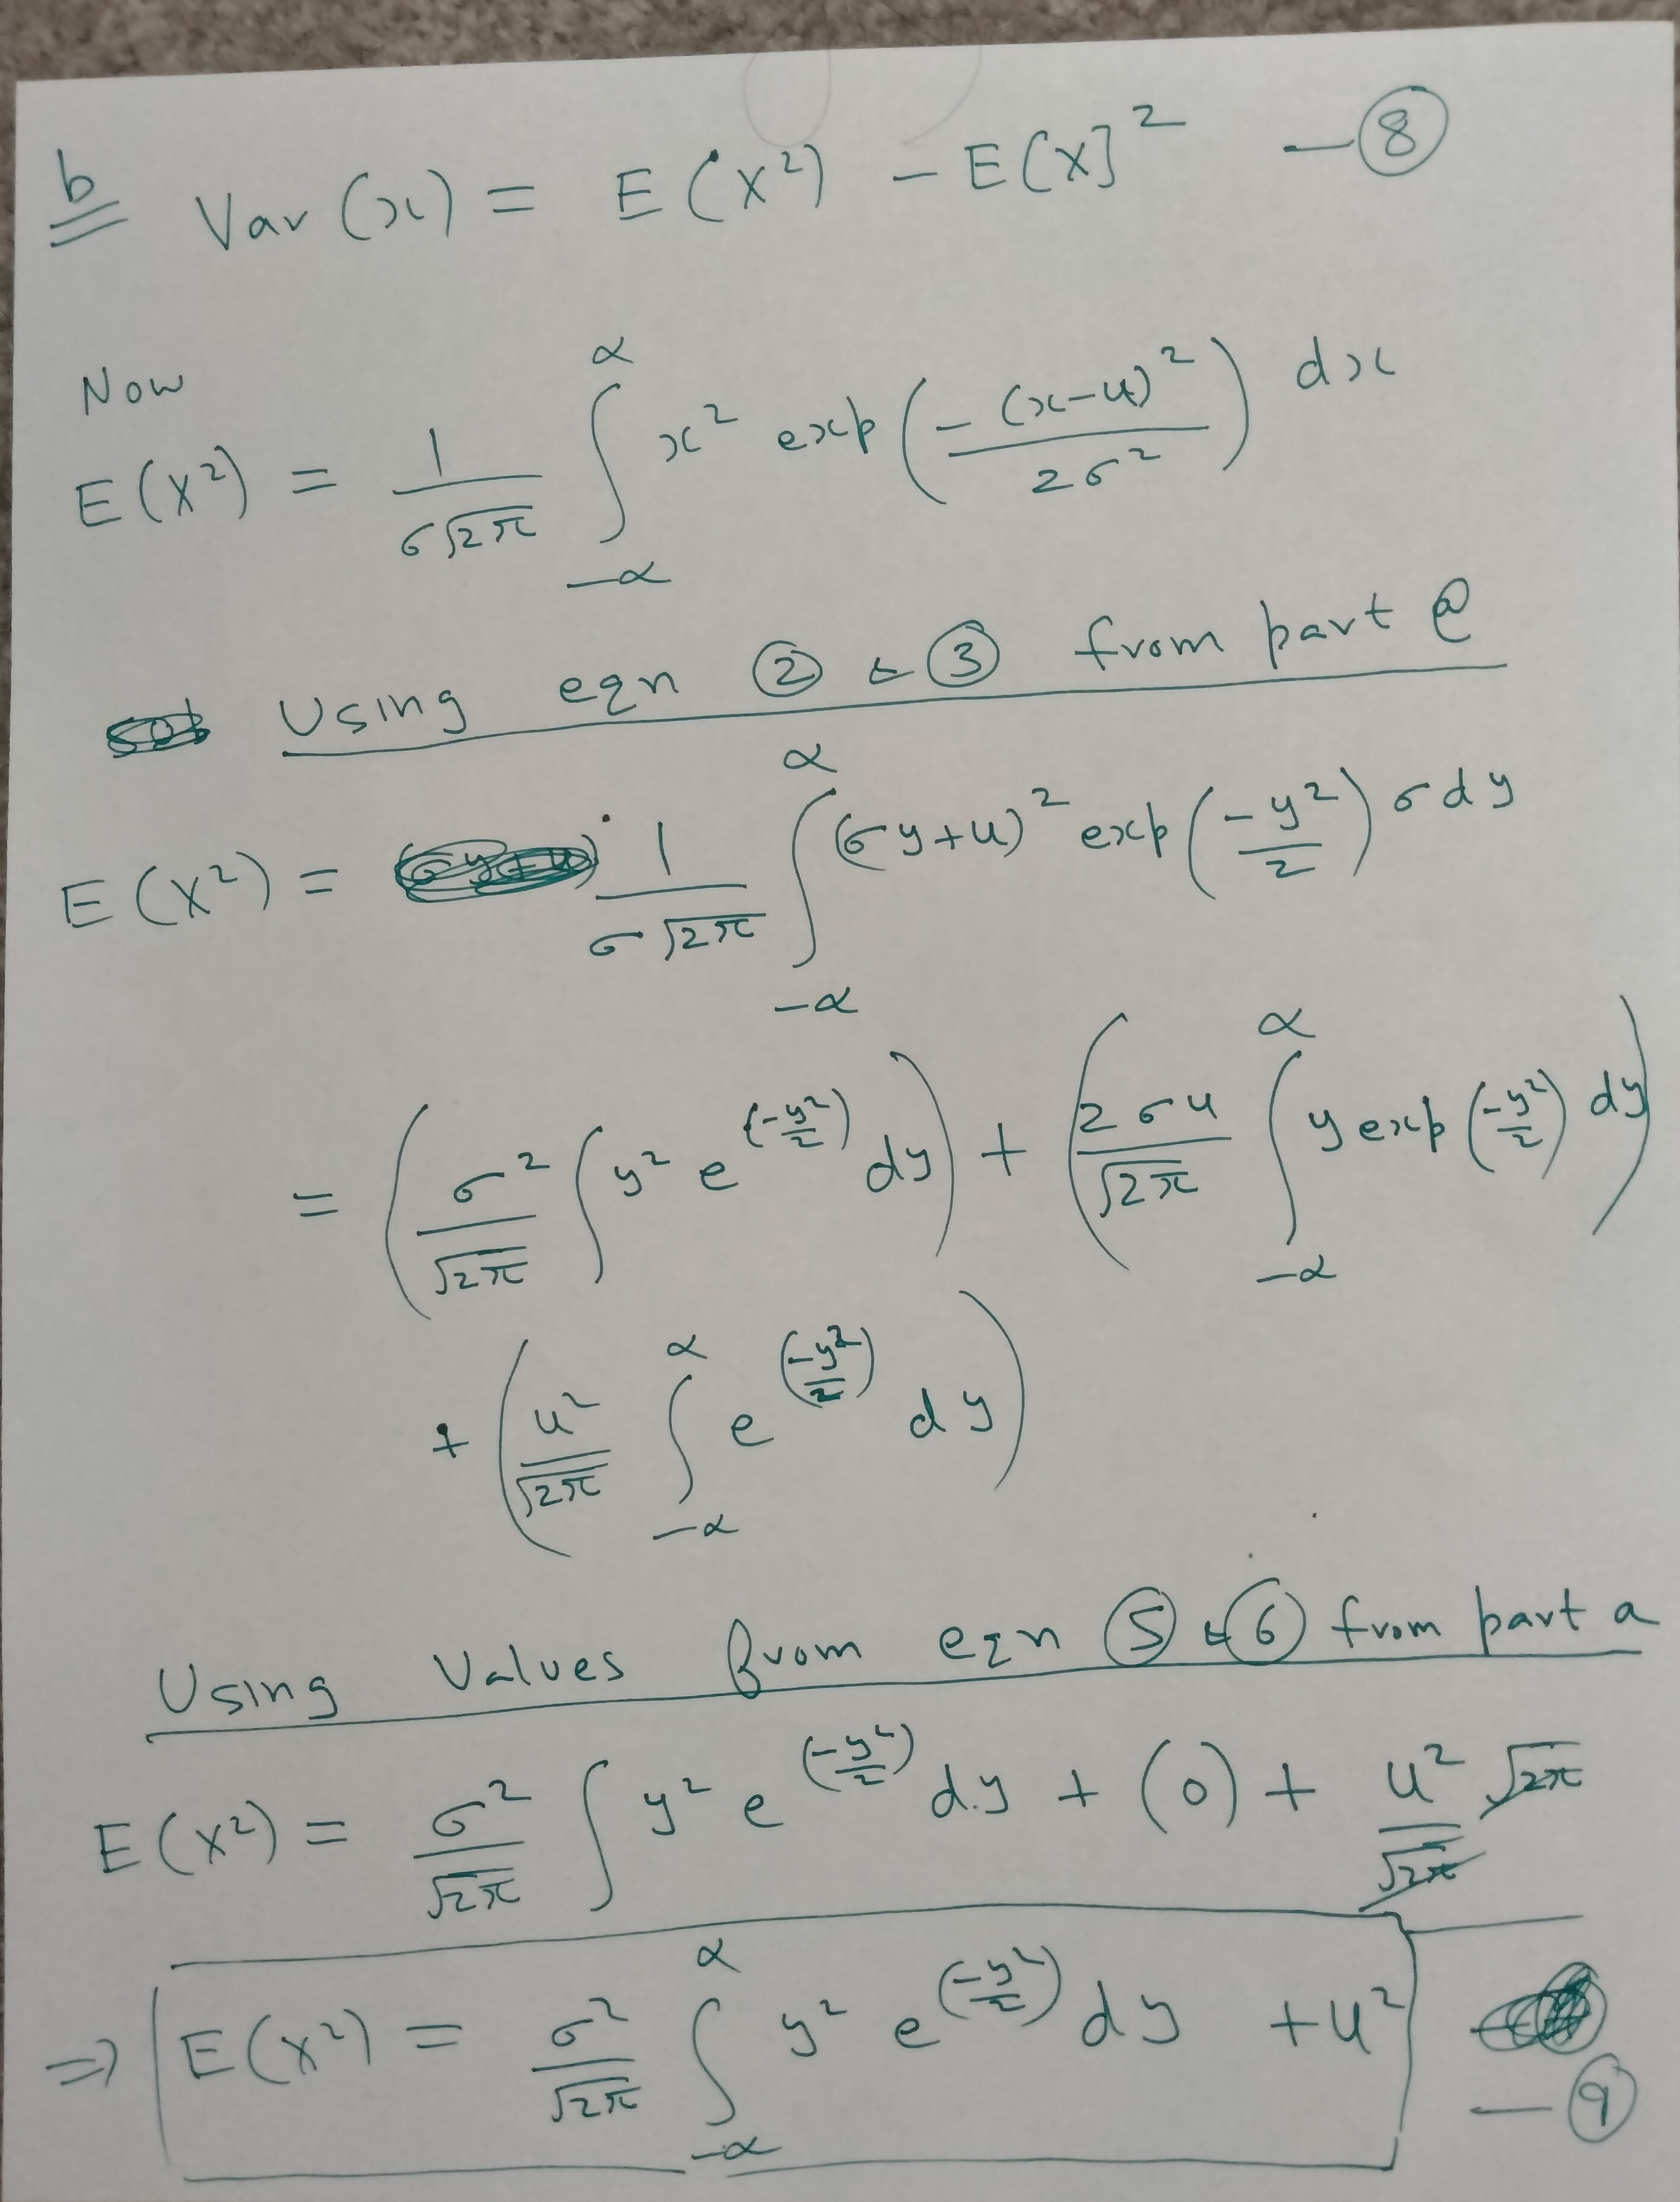 b Var(x) = E(X²) - E[X]² — ⑧
Now
E(X²) = 1/(σ√2π) ∫_{-∝}^{∝} x² exp(-(x-u)²/2σ²) dx
Using eqn ② & ③ from part ⓐ
E(X²) = 1/(σ√2π) ∫_{-∝}^{∝} (σy+u)² exp(-y²/2) σdy
= (σ²/√2π ∫ y² e^(-y²/2) dy) + (2σu/√2π ∫_{-∝}^{∝} y exp(-y²/2) dy)
+ (u²/√2π ∫_{-∝}^{∝} e^(-y²/2) dy)
Using Values from eqn ⑤ & ⑥ from part a
E(X²) = σ²/√2π ∫ y² e^(-y²/2) dy + (0) + u²/√2π √2π
⇒ E(X²) = σ²/√2π ∫_{-∝}^{∝} y² e^(-y²/2) dy + u² — ⑨